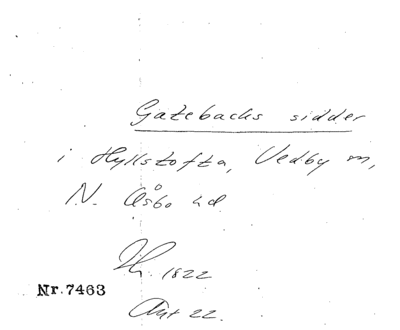 Gatebacks sidder
i Hyllstofta, Vedby m,
N. Åsbo hd
1822
Nr.7463
22.